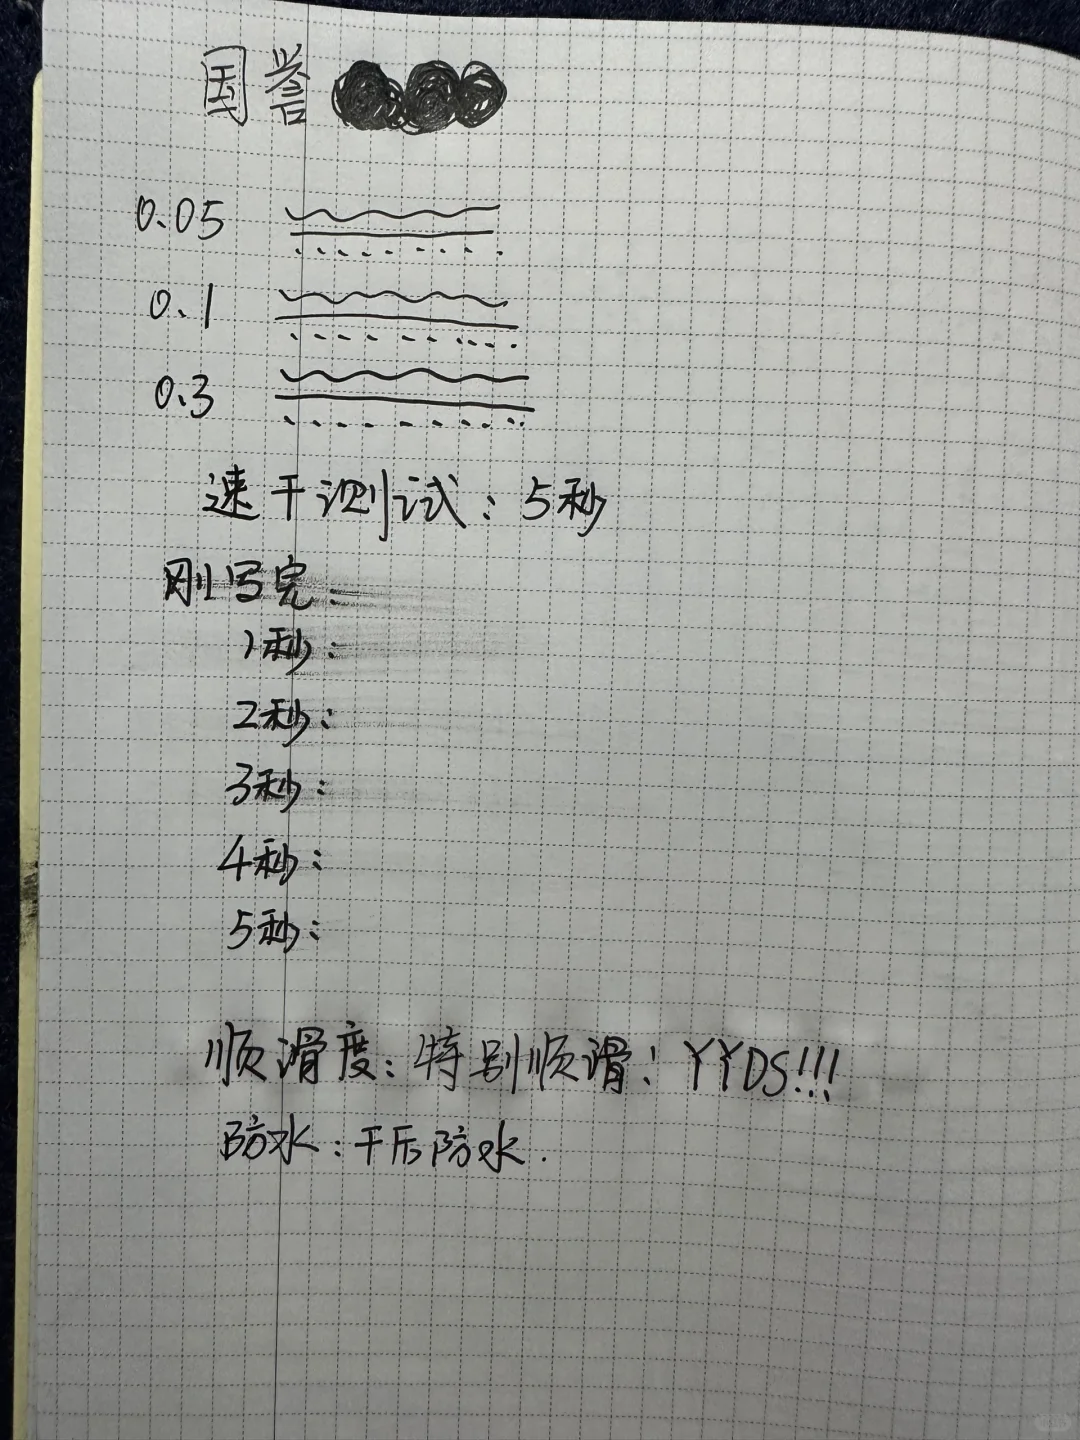 国誉
0.05
0.1
0.3
速干测试：5秒
刚写完：
1秒：
2秒：
3秒：
4秒：
5秒：
顺滑度：特别顺滑！YYDS!!!
防水：干后防水.